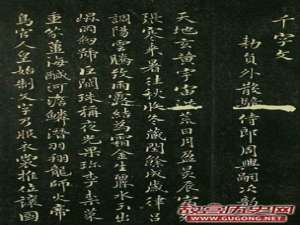 千字文
勑員外散騎侍郎周興嗣次韻
天地玄黃宇宙洪荒日月盈昃辰宿列
張寒來暑往秋收冬藏閏餘成歲律呂
調陽雲騰致雨露結為霜金生麗水玉出
崑岡劍號巨闕珠稱夜光果珍李柰菜
重芥薑海鹹河淡鱗潛羽翔龍師火帝
鳥官人皇始制文字乃服衣裳推位讓國
故宫历史网